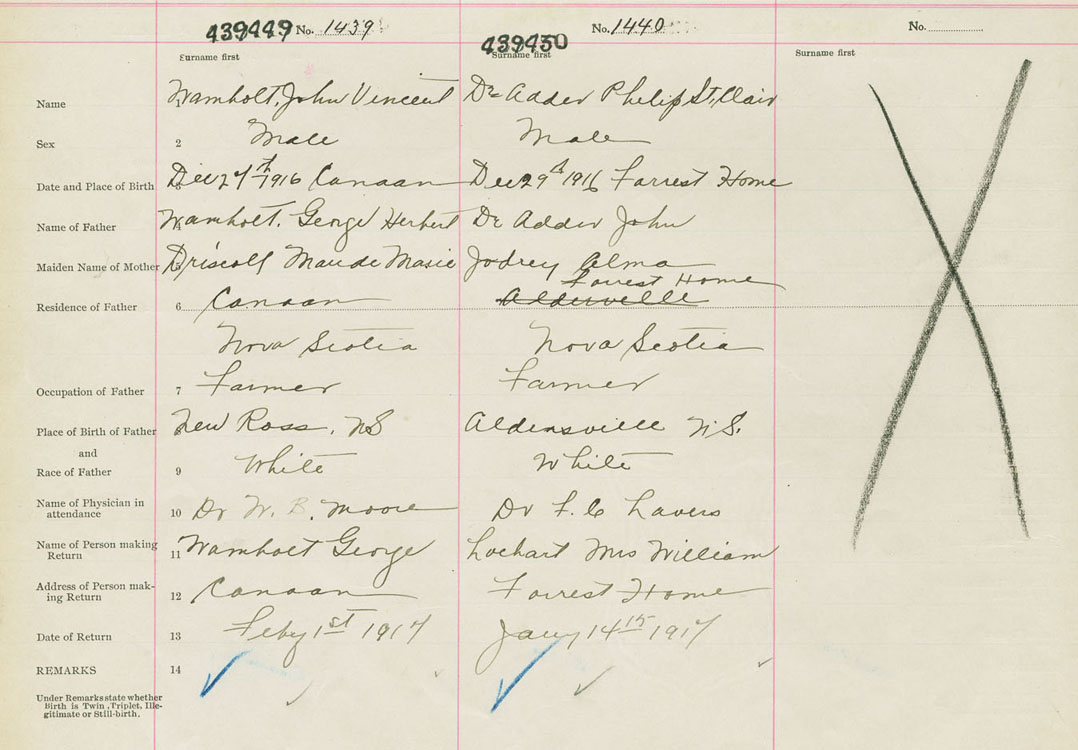 439449 No. 1439
439450 No. 1440
No.
Surname first Surname first Surname first
Name Wamholt, John Vincent De Adder Philip St. Clair
Sex 2 Male Male
Date and Place of Birth Dec 27th 1916 Canaan Dec 29th 1916 Forrest Home
Name of Father Wamholt, George Herbert De Adder John
Maiden Name of Mother 5 Driscoll Maude Jodrey Alma
Forrest Home
Residence of Father 6 Canaan
Nova Scotia Nova Scotia
Occupation of Father 7 Farmer Farmer
Place of Birth of Father New Ross, NS Aldersville N.S.
and
Race of Father 9 White White
Name of Physician in
attendance 10 Dr W. B. Moore Dr F. C Lavers
Name of Person making
Return 11 Wamholt George Lochart Mrs William
Address of Person mak-
ing Return 12 Canaan Forrest Home
Date of Return 13 Feby 1st 1917 Jany 14th 1917
REMARKS 14
Under Remarks state whether
Birth is Twin, Triplet, Ille-
gitimate or Still-birth.